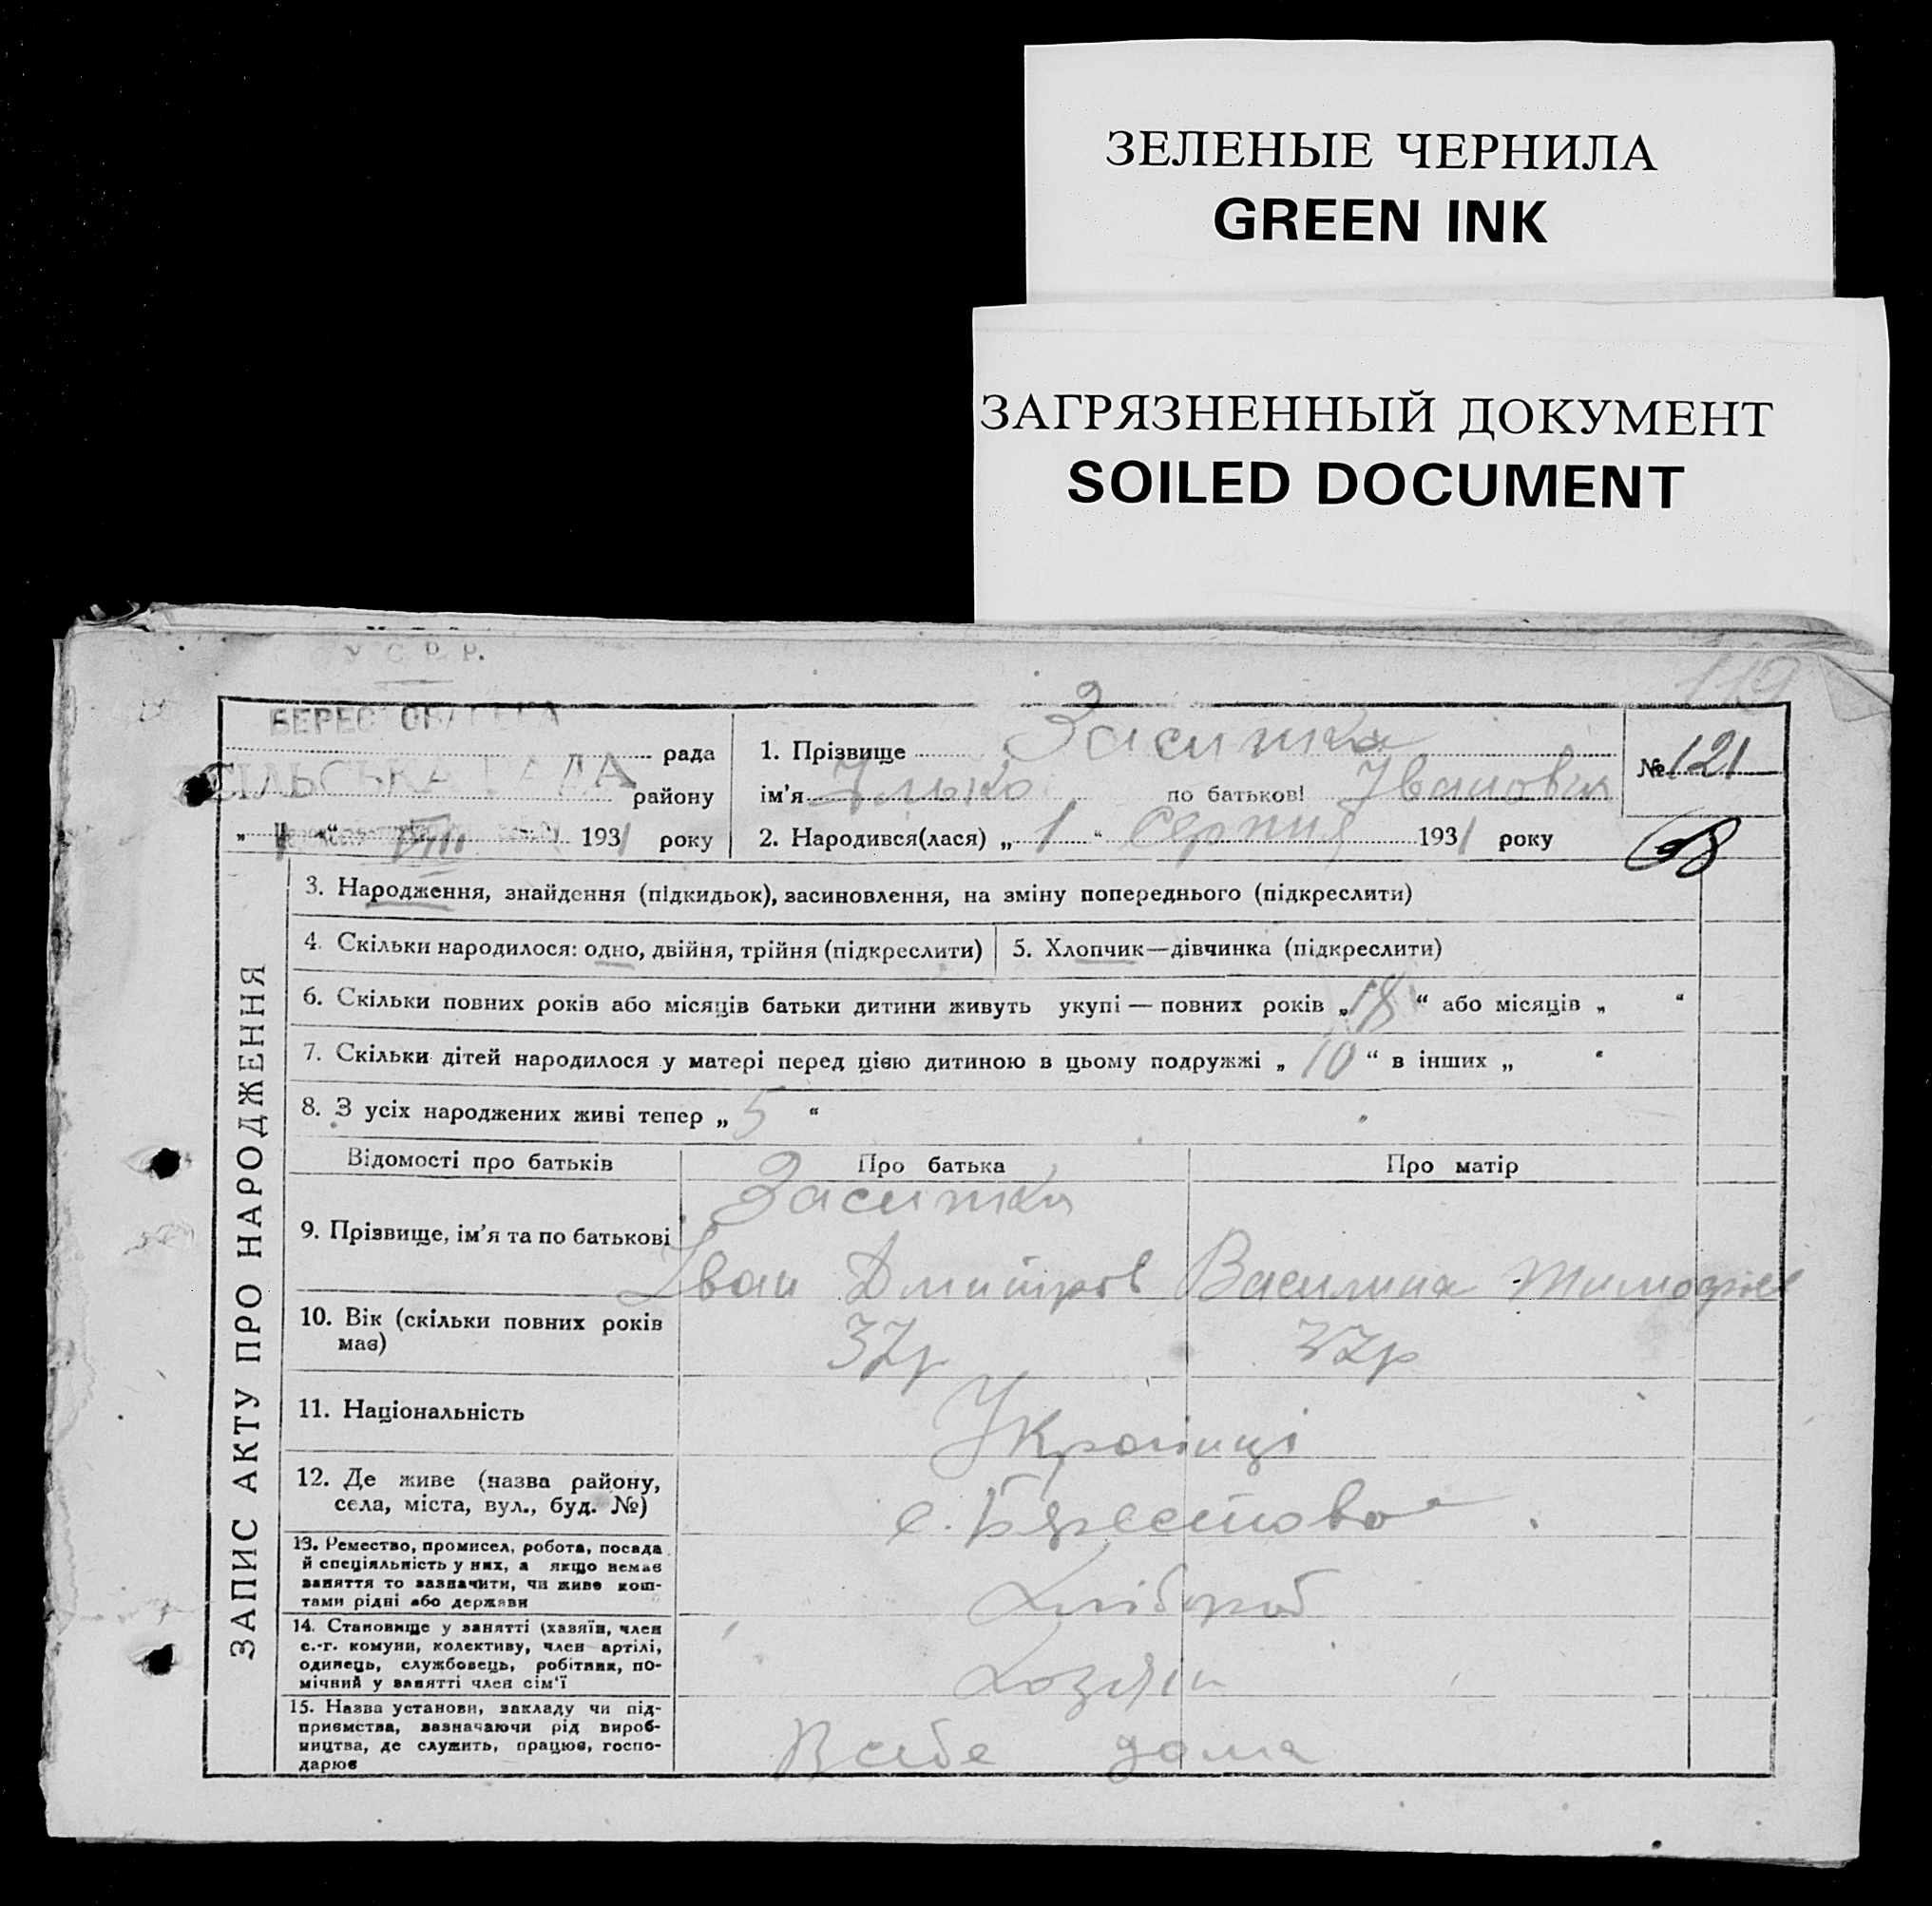 ЗЕЛЕНЫЕ ЧЕРНИЛА
GREEN INK
ЗАГРЯЗНЕННЫЙ ДОКУМЕНТ
SOILED DOCUMENT
У.С.Р.Р.
119
рада
СІЛЬСЬКА РАДА
району
„ “ VIII 1931 року
1. Прізвище Засипка
ім’я Ілько по батькові Іванович
2. Народився(лася) „ 1 “ Серпня 1931 року
№ 121
68
ЗАПИС АКТУ ПРО НАРОДЖЕННЯ
3. Народження, знайдення (підкидьок), засиновлення, на зміну попереднього (підкреслити)
4. Скільки народилося: одно, двійня, трійня (підкреслити) 5. Хлопчик—дівчинка (підкреслити)
6. Скільки повних років або місяців батьки дитини живуть укупі — повних років „ 18 “ або місяців „ “
7. Скільки дітей народилося у матері перед цією дитиною в цьому подружжі „ 10 “ в інших „ “
8. З усіх народжених живі тепер „ 5 “
Відомості про батьків Про батька Про матір
9. Прізвище, ім’я та по батькові
Засипка
Іван Дмитров Василина Тимофієв
10. Вік (скільки повних років
має)
37р 37р
11. Національність
Українці
12. Де живе (назва району,
села, міста, вул., буд. №)
с. Берестова
13. Ремество, промисел, робота, посада
й спеціяльність у них, а якщо немає
заняття то зазначити, чи живе кош-
тами рідні або держави
Хлібороб
14. Становище у занятті (хазяїн, член
с.-г. комуни, колективу, член артілі,
одинець, службовець, робітник, по-
мічний у занятті член сім’ї
Хозяїн
15. Назва установи, закладу чи під-
приємства, зазначаючи рід вироб-
ництва, де служить, працює, госпо-
дарює
В себе дома